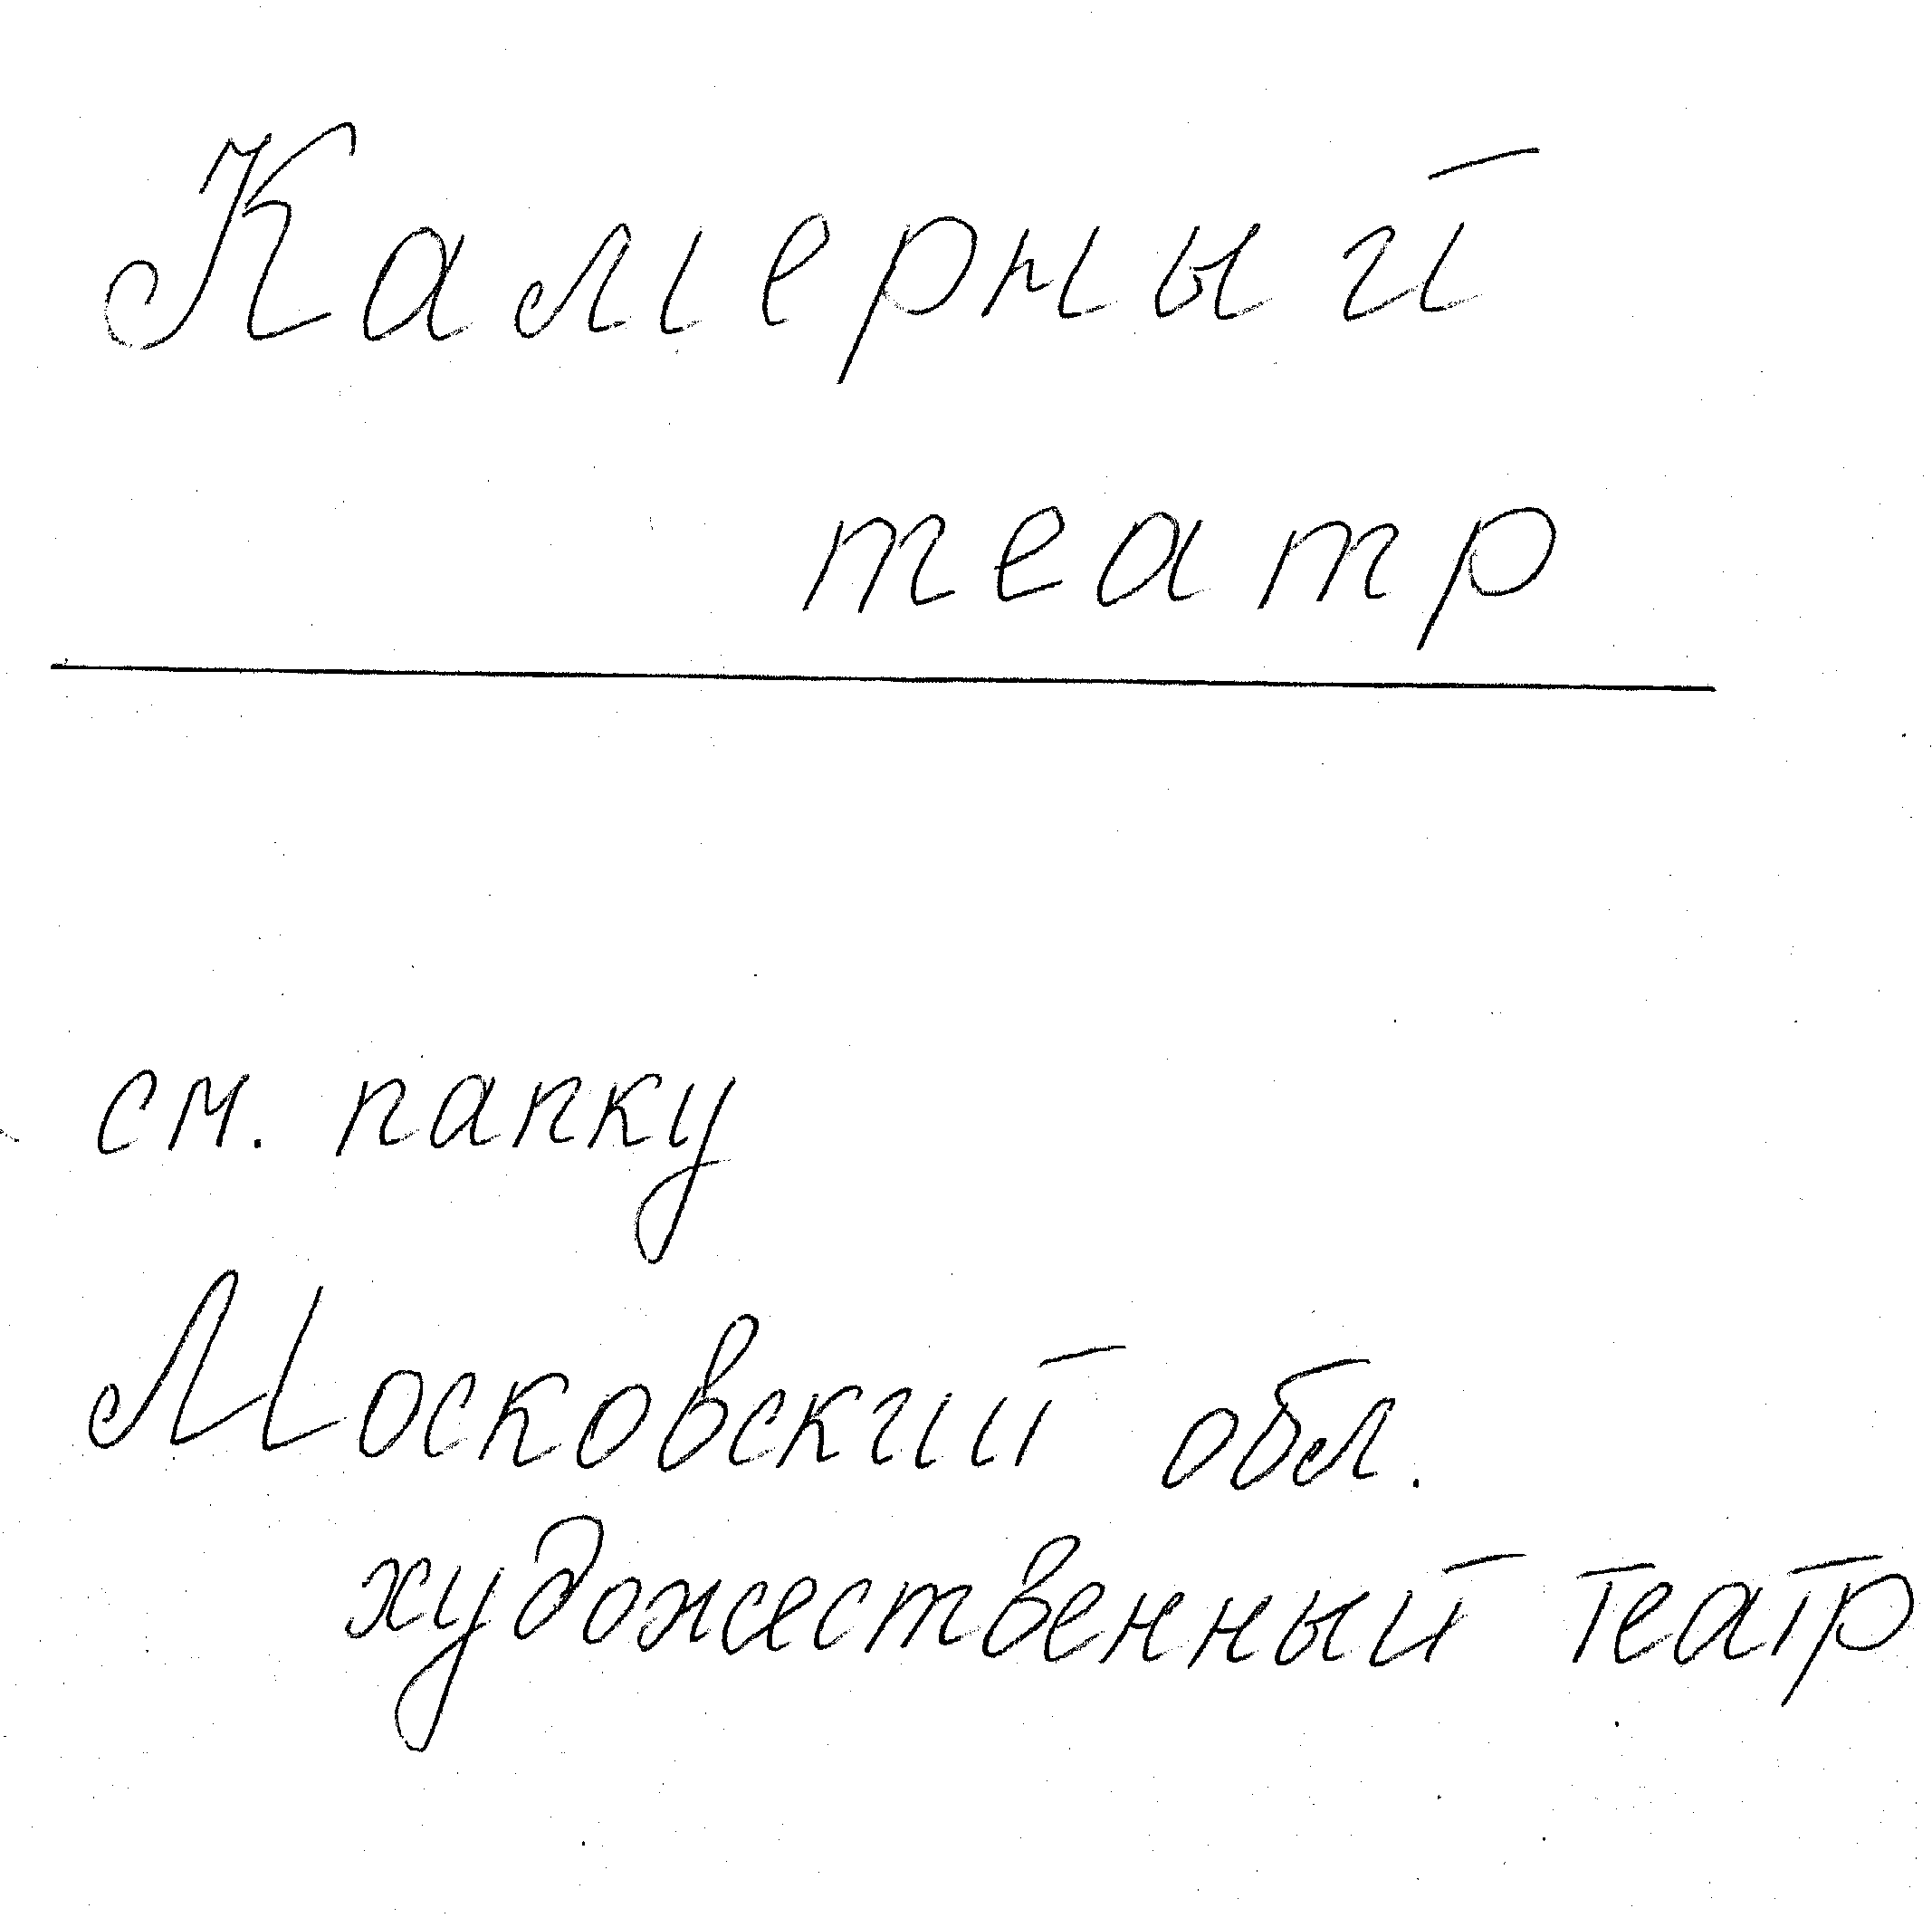 Камерный
театр
см. папку
Московский обл.
художественный театр